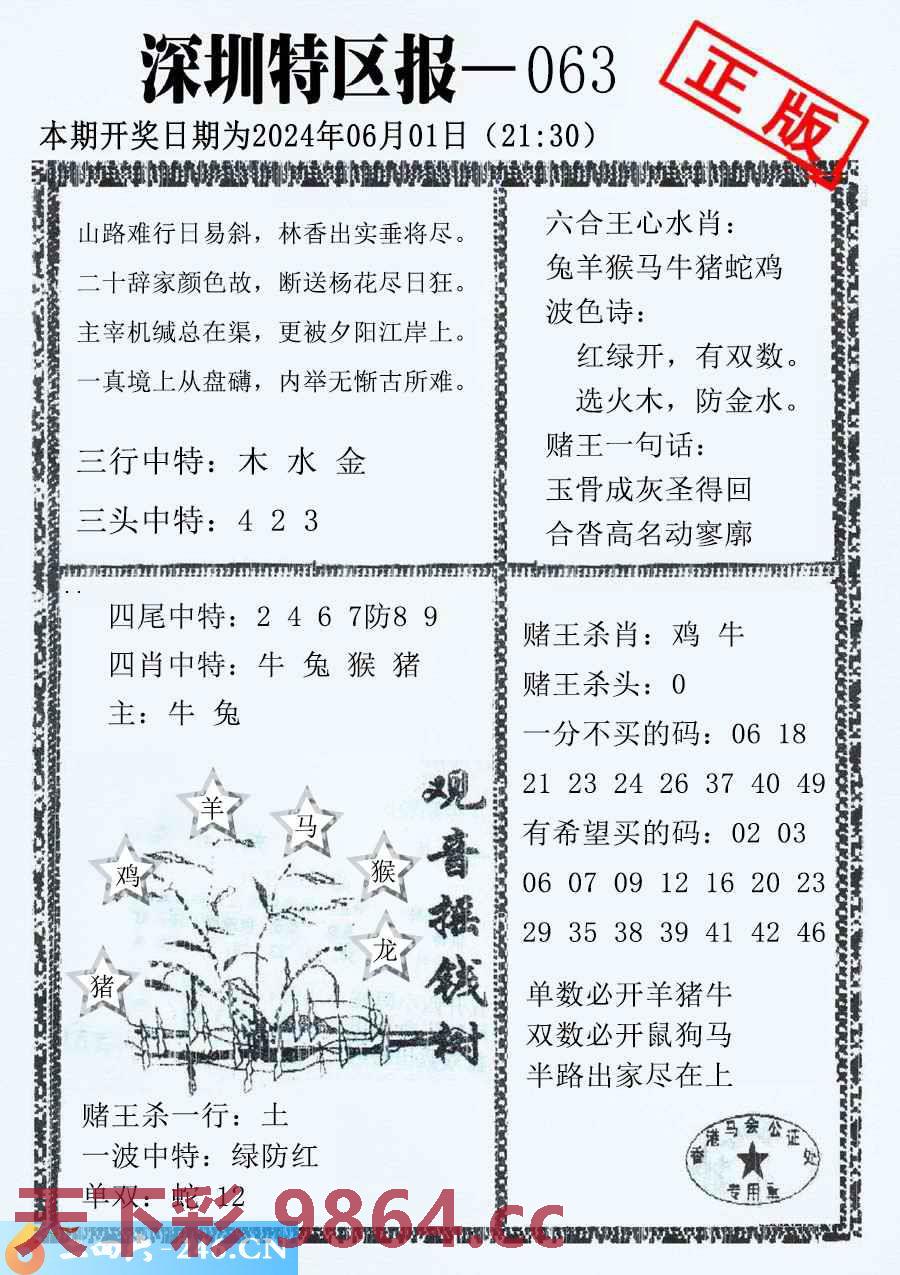 深圳特区报—063
正版
本期开奖日期为2024年06月01日（21:30）
山路难行日易斜，林香出实垂将尽。
二十辞家颜色故，断送杨花尽日狂。
主宰机缄总在渠，更被夕阳江岸上。
一真境上从盘礴，内举无惭古所难。
三行中特：木 水 金
三头中特：4 2 3
六合王心水肖：
兔羊猴马牛猪蛇鸡
波色诗：
红绿开，有双数。
选火木，防金水。
赌王一句话：
玉骨成灰圣得回
合沓高名动寥廓
四尾中特：2 4 6 7防8 9
四肖中特：牛 兔 猴 猪
主：牛 兔
羊
马
鸡
猴
龙
猪
观音摇钱树
赌王杀一行：土
一波中特：绿防红
单双：蛇 12
赌王杀肖：鸡 牛
赌王杀头：0
一分不买的码：06 18
21 23 24 26 37 40 49
有希望买的码：02 03
06 07 09 12 16 20 23
29 35 38 39 41 42 46
单数必开羊猪牛
双数必开鼠狗马
半路出家尽在上
香港马会公证处
专用章
天下彩 9864.cc